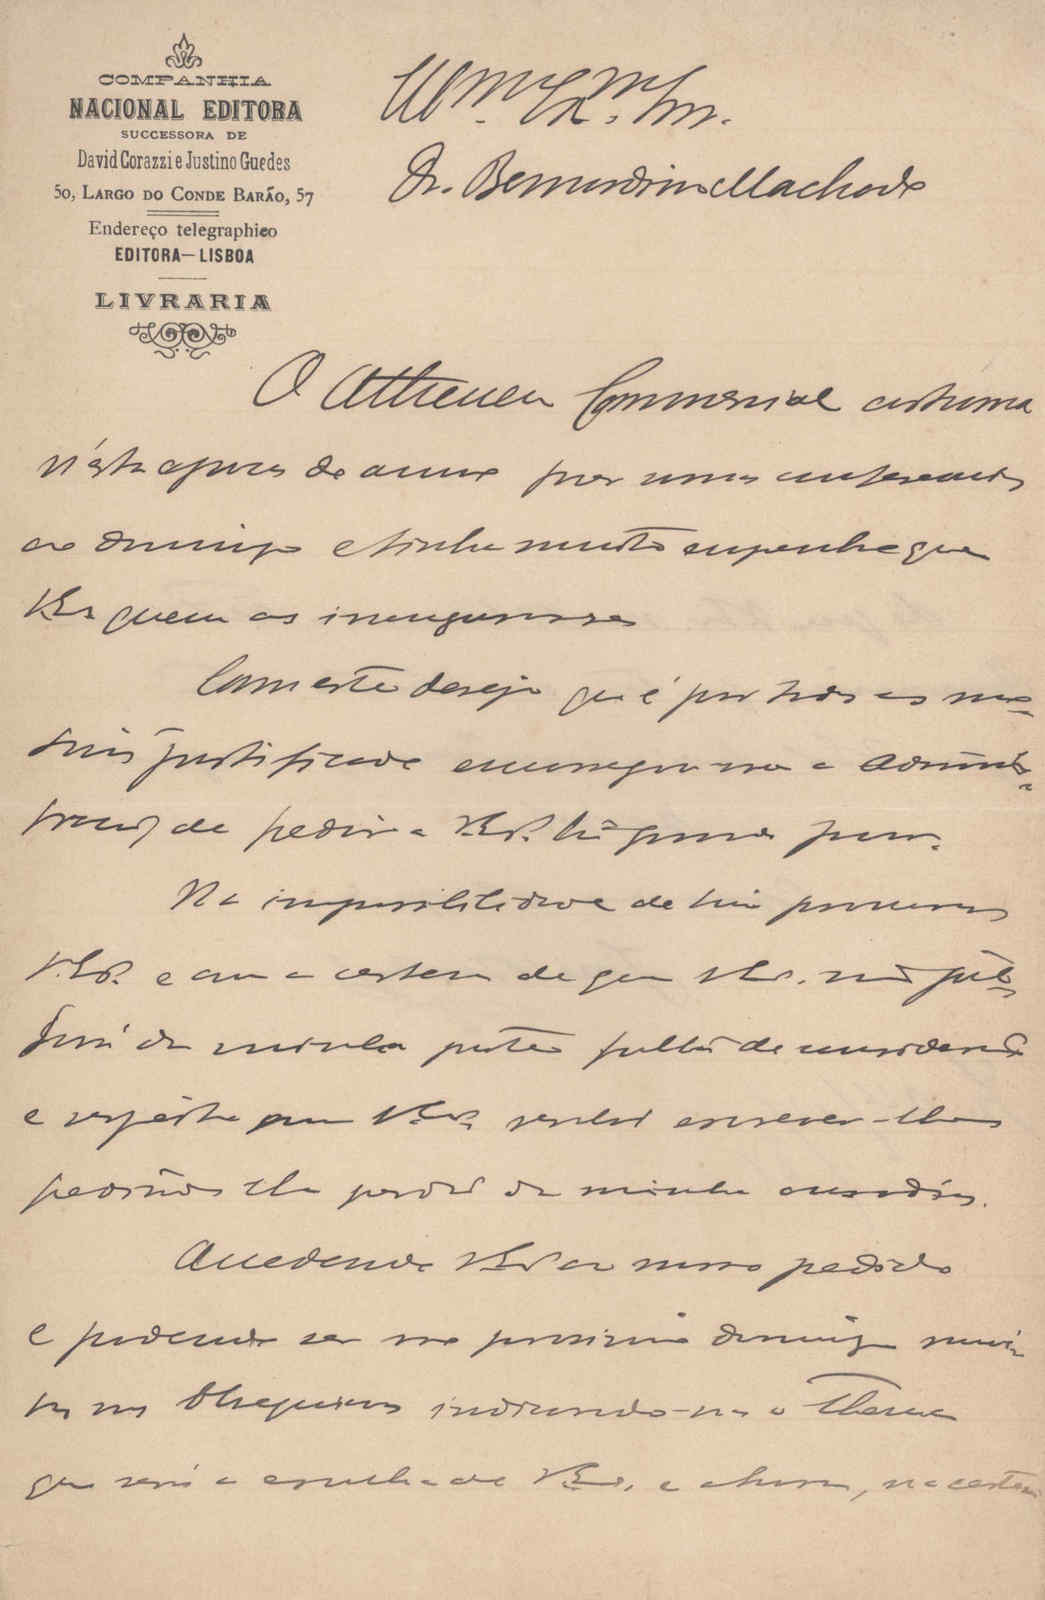 COMPANHIA
NACIONAL EDITORA
SUCCESSORA DE
David Corazzi e Justino Guedes
50, LARGO DO CONDE BARÃO, 57
Endereço telegraphico
EDITORA—LISBOA
LIVRARIA
Illmo. Exmo. Snr.
Dr. Bernardino Machado
O Atheneu Commercial costuma
n'esta epoca do anno fazer umas conferencias
ao domingo e tinha muito empenho que
V. Exa. quem as inaugurasse
Com este desejo que é por todos os mo-
tivos justificado encarregou-me a Adminis-
tração de pedir a V. Exa.
Na impossibilidade de hir procurar
V. Exa. e com a certeza de que V. Exa. não jul-
gará da minha parte falta de consideração
e respeito por V. Exa. resolvi escrever-lhe
pedindo lhe perdão da minha ousadia.
Accedendo V. Exa. ao nosso pedido
e podendo ser no proximo domingo mui-
to nos obsequiava indicando-nos o Thema
que será a escolha de V. Exa. e a hora, na certeza